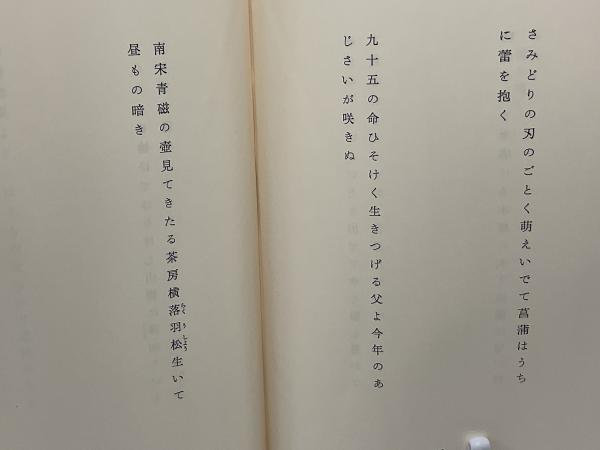 さみどりの刃のごとく萌えいでて菖蒲はうち
に蕾を抱く
九十五の命ひそけく生きつげる父よ今年のあ
じさいが咲きぬ
南宋青磁の壺見てきたる茶房横落羽松生いて
らくうしょう
昼もの暗き